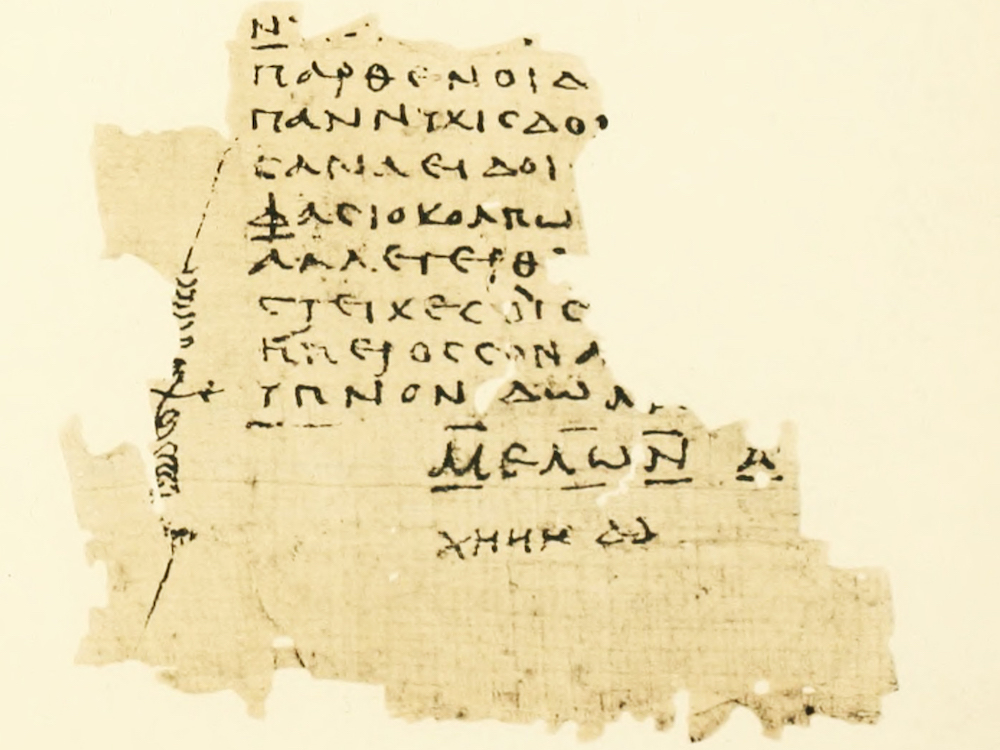 Ν
ΠΑΡΘΕΝΟΙΔ
ΠΑΝΝΥΧΙϹΔΟΙ
ϹΑΝΑΕΙΔΟΙ
ΦΑϹΙΟΚΟΛΠΩ
ΑΛΛΕΓΕΡΘ
ϹΤΕΙΧΕϹΟΙϹ
ΗΠΕΡΟϹϹΟΝΑ
ΥΠΝΟΝ ΔΩΜ
ΜΕΛΩΝ Α
ΧΗΗΗ ΔΔ